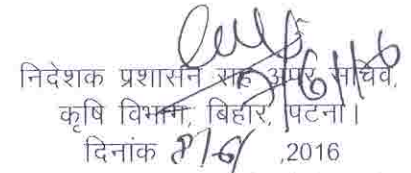 निदेशक प्रशासन सह अपर सचिव,
कृषि विभाग, बिहार, पटना।
दिनांक ,2016